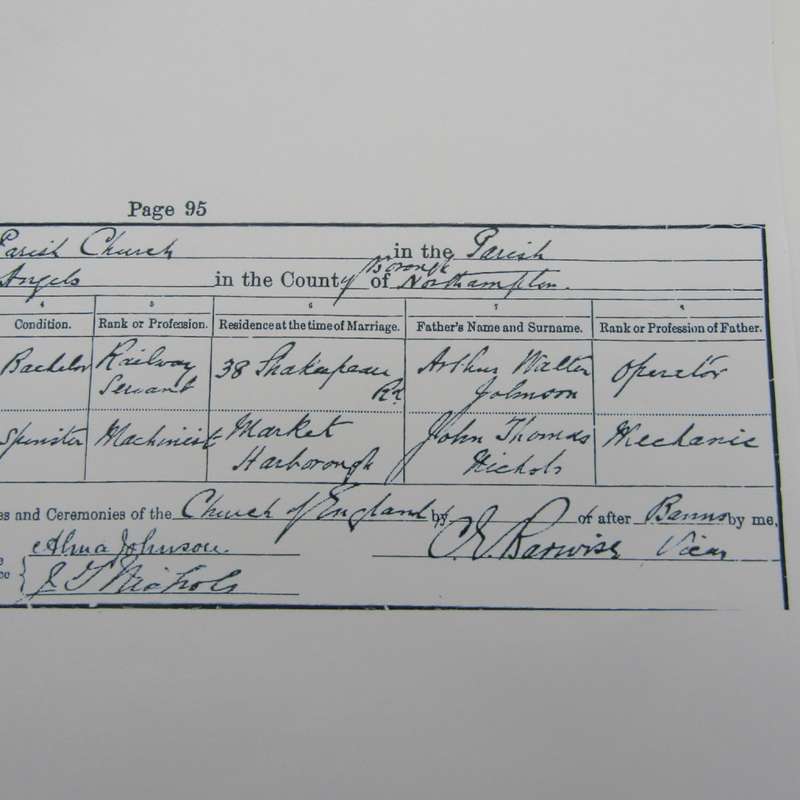 Page 95
Parish Church in the Parish
Angels in the County Borough of Northampton.
4 5 6 7 8
Condition. Rank or Profession. Residence at the time of Marriage. Father's Name and Surname. Rank or Profession of Father.
Bachelor Railway 38 Shakespeare Arthur Walter Operator
Servant Rd Johnson
Spinster Machinist Market John Thomas Mechanic
Harborough Nichols
es and Ceremonies of the Church of England by or after Banns by me,
e Alma Johnson. C. E. Barwise Vicar
ce J T Nichols